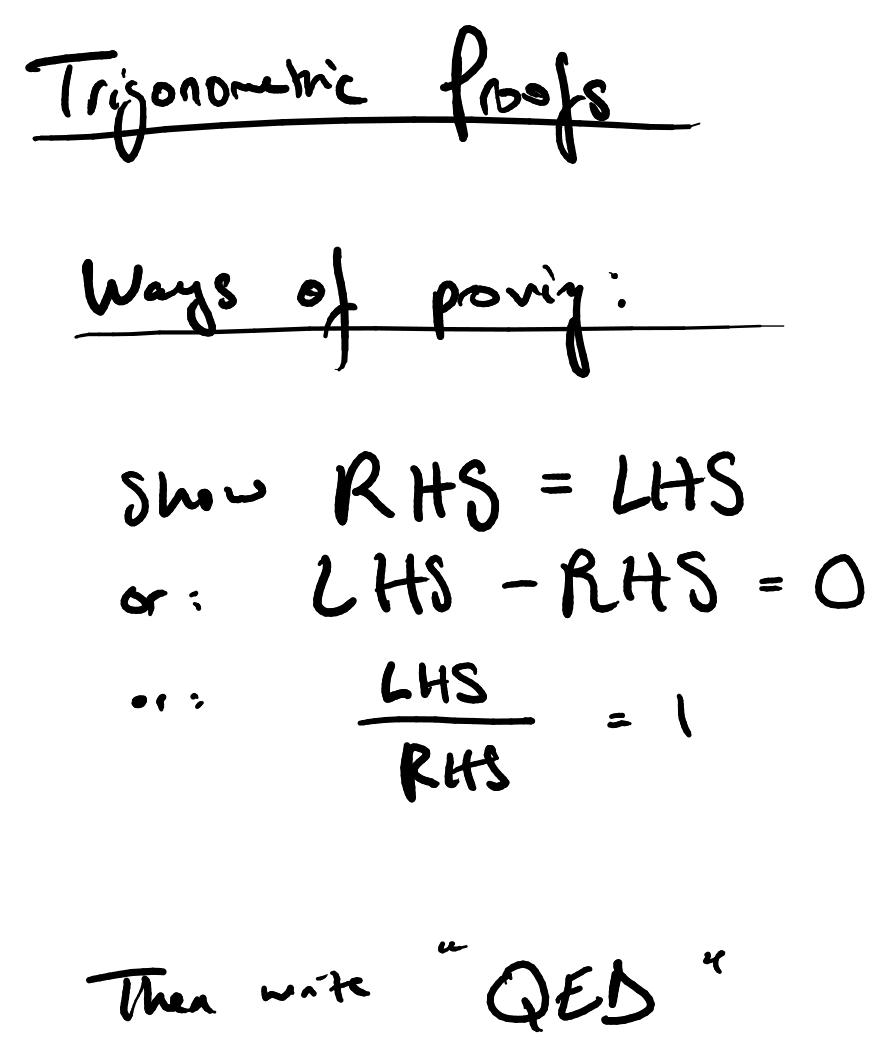 Trigonometric Proofs
Ways of proving:
Show RHS = LHS
or: LHS - RHS = 0
or: LHS / RHS = 1
Then write "QED"